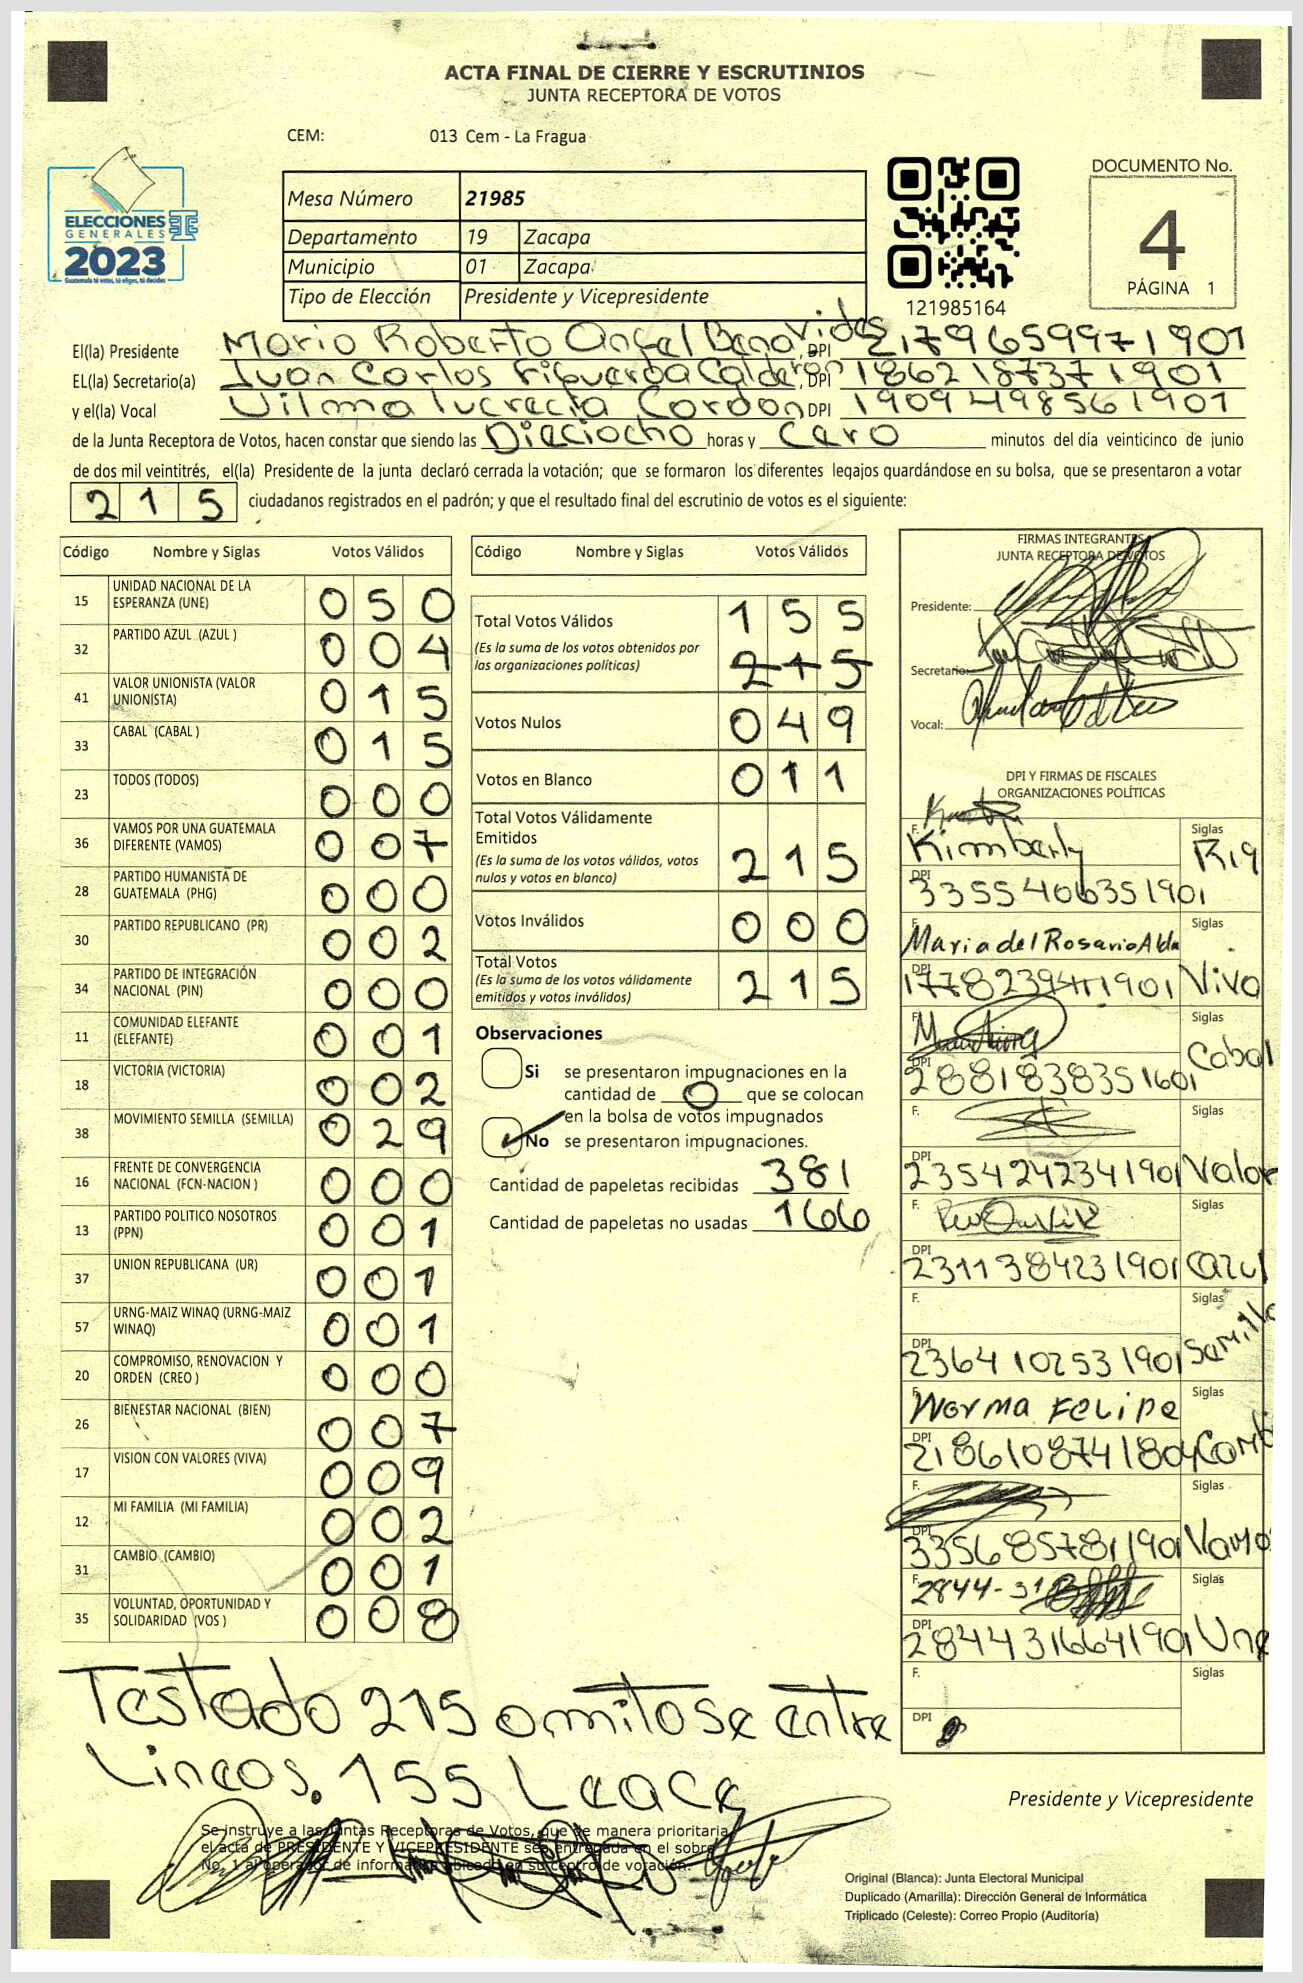 ACTA FINAL DE CIERRE Y ESCRUTINIOS
JUNTA RECEPTORA DE VOTOS
CEM: 013 Cem - La Fragua
ELECCIONES
GENERALES
2023
Guatemala tú votas, tú eliges, tú decides
Mesa Número 21985
Departamento 19 Zacapa
Municipio 01 Zacapa
Tipo de Elección Presidente y Vicepresidente
121985164
DOCUMENTO No.
4
PÁGINA 1
El(la) Presidente Mario Roberto Angel Benavides, DPI 2179659971901
EL(la) Secretario(a) Juan Carlos Figueroa Calderón, DPI 1862187371901
y el(la) Vocal Vilma lucrecia Cordon DPI 1909498561901
de la Junta Receptora de Votos, hacen constar que siendo las Dieciocho horas y Cero minutos del día veinticinco de junio
de dos mil veintitrés, el(la) Presidente de la junta declaró cerrada la votación; que se formaron los diferentes legajos guardándose en su bolsa, que se presentaron a votar
215 ciudadanos registrados en el padrón; y que el resultado final del escrutinio de votos es el siguiente:
Código Nombre y Siglas Votos Válidos
15 UNIDAD NACIONAL DE LA ESPERANZA (UNE) 050
32 PARTIDO AZUL (AZUL ) 004
41 VALOR UNIONISTA (VALOR UNIONISTA) 015
33 CABAL (CABAL ) 015
23 TODOS (TODOS) 000
36 VAMOS POR UNA GUATEMALA DIFERENTE (VAMOS) 007
28 PARTIDO HUMANISTA DE GUATEMALA (PHG) 000
30 PARTIDO REPUBLICANO (PR) 002
34 PARTIDO DE INTEGRACIÓN NACIONAL (PIN) 000
11 COMUNIDAD ELEFANTE (ELEFANTE) 001
18 VICTORIA (VICTORIA) 002
38 MOVIMIENTO SEMILLA (SEMILLA) 029
16 FRENTE DE CONVERGENCIA NACIONAL (FCN-NACION ) 000
13 PARTIDO POLITICO NOSOTROS (PPN) 001
37 UNION REPUBLICANA (UR) 001
57 URNG-MAIZ WINAQ (URNG-MAIZ WINAQ) 001
20 COMPROMISO, RENOVACION Y ORDEN (CREO ) 000
26 BIENESTAR NACIONAL (BIEN) 007
17 VISION CON VALORES (VIVA) 009
12 MI FAMILIA (MI FAMILIA) 002
31 CAMBIO (CAMBIO) 001
35 VOLUNTAD, OPORTUNIDAD Y SOLIDARIDAD (VOS ) 008
Código Nombre y Siglas Votos Válidos
Total Votos Válidos 155
(Es la suma de los votos obtenidos por
las organizaciones políticas) 215
Votos Nulos 049
Votos en Blanco 011
Total Votos Válidamente
Emitidos
(Es la suma de los votos válidos, votos
nulos y votos en blanco) 215
Votos Inválidos 000
Total Votos
(Es la suma de los votos válidamente
emitidos y votos inválidos) 215
Observaciones
Si se presentaron impugnaciones en la
cantidad de 0 que se colocan
en la bolsa de votos impugnados
No se presentaron impugnaciones.
Cantidad de papeletas recibidas 381
Cantidad de papeletas no usadas 166
FIRMAS INTEGRANTES
JUNTA RECEPTORA DE VOTOS
Presidente:
Secretario:
Vocal:
DPI Y FIRMAS DE FISCALES
ORGANIZACIONES POLÍTICAS
F. Kimberly Siglas
DPI 3355406351901
F. Maria del Rosario Siglas Viva
DPI 1778239411901
F. Siglas Cabal
DPI 2881838351601
F. Siglas Valor
DPI 2354242341901
F. Siglas Cazul
DPI 2311384231901
F. Siglas Semilla
DPI 2364102531901
F. Norma Felipe Siglas
DPI 2186108741804
F. Siglas Vamos
DPI 3356857811901
F. 2844-31 Siglas Une
DPI 2844316641901
F. Siglas
DPI
Testado 215 omitose entre
Lineas. 155 Lease
Se instruye a las Juntas Receptoras de Votos, que de manera prioritaria
el acta de PRESIDENTE Y VICEPRESIDENTE sea entregada en el sobre
No. 1 al operador de informática ubicado en su centro de votación.
Presidente y Vicepresidente
Original (Blanca): Junta Electoral Municipal
Duplicado (Amarilla): Dirección General de Informática
Triplicado (Celeste): Correo Propio (Auditoría)